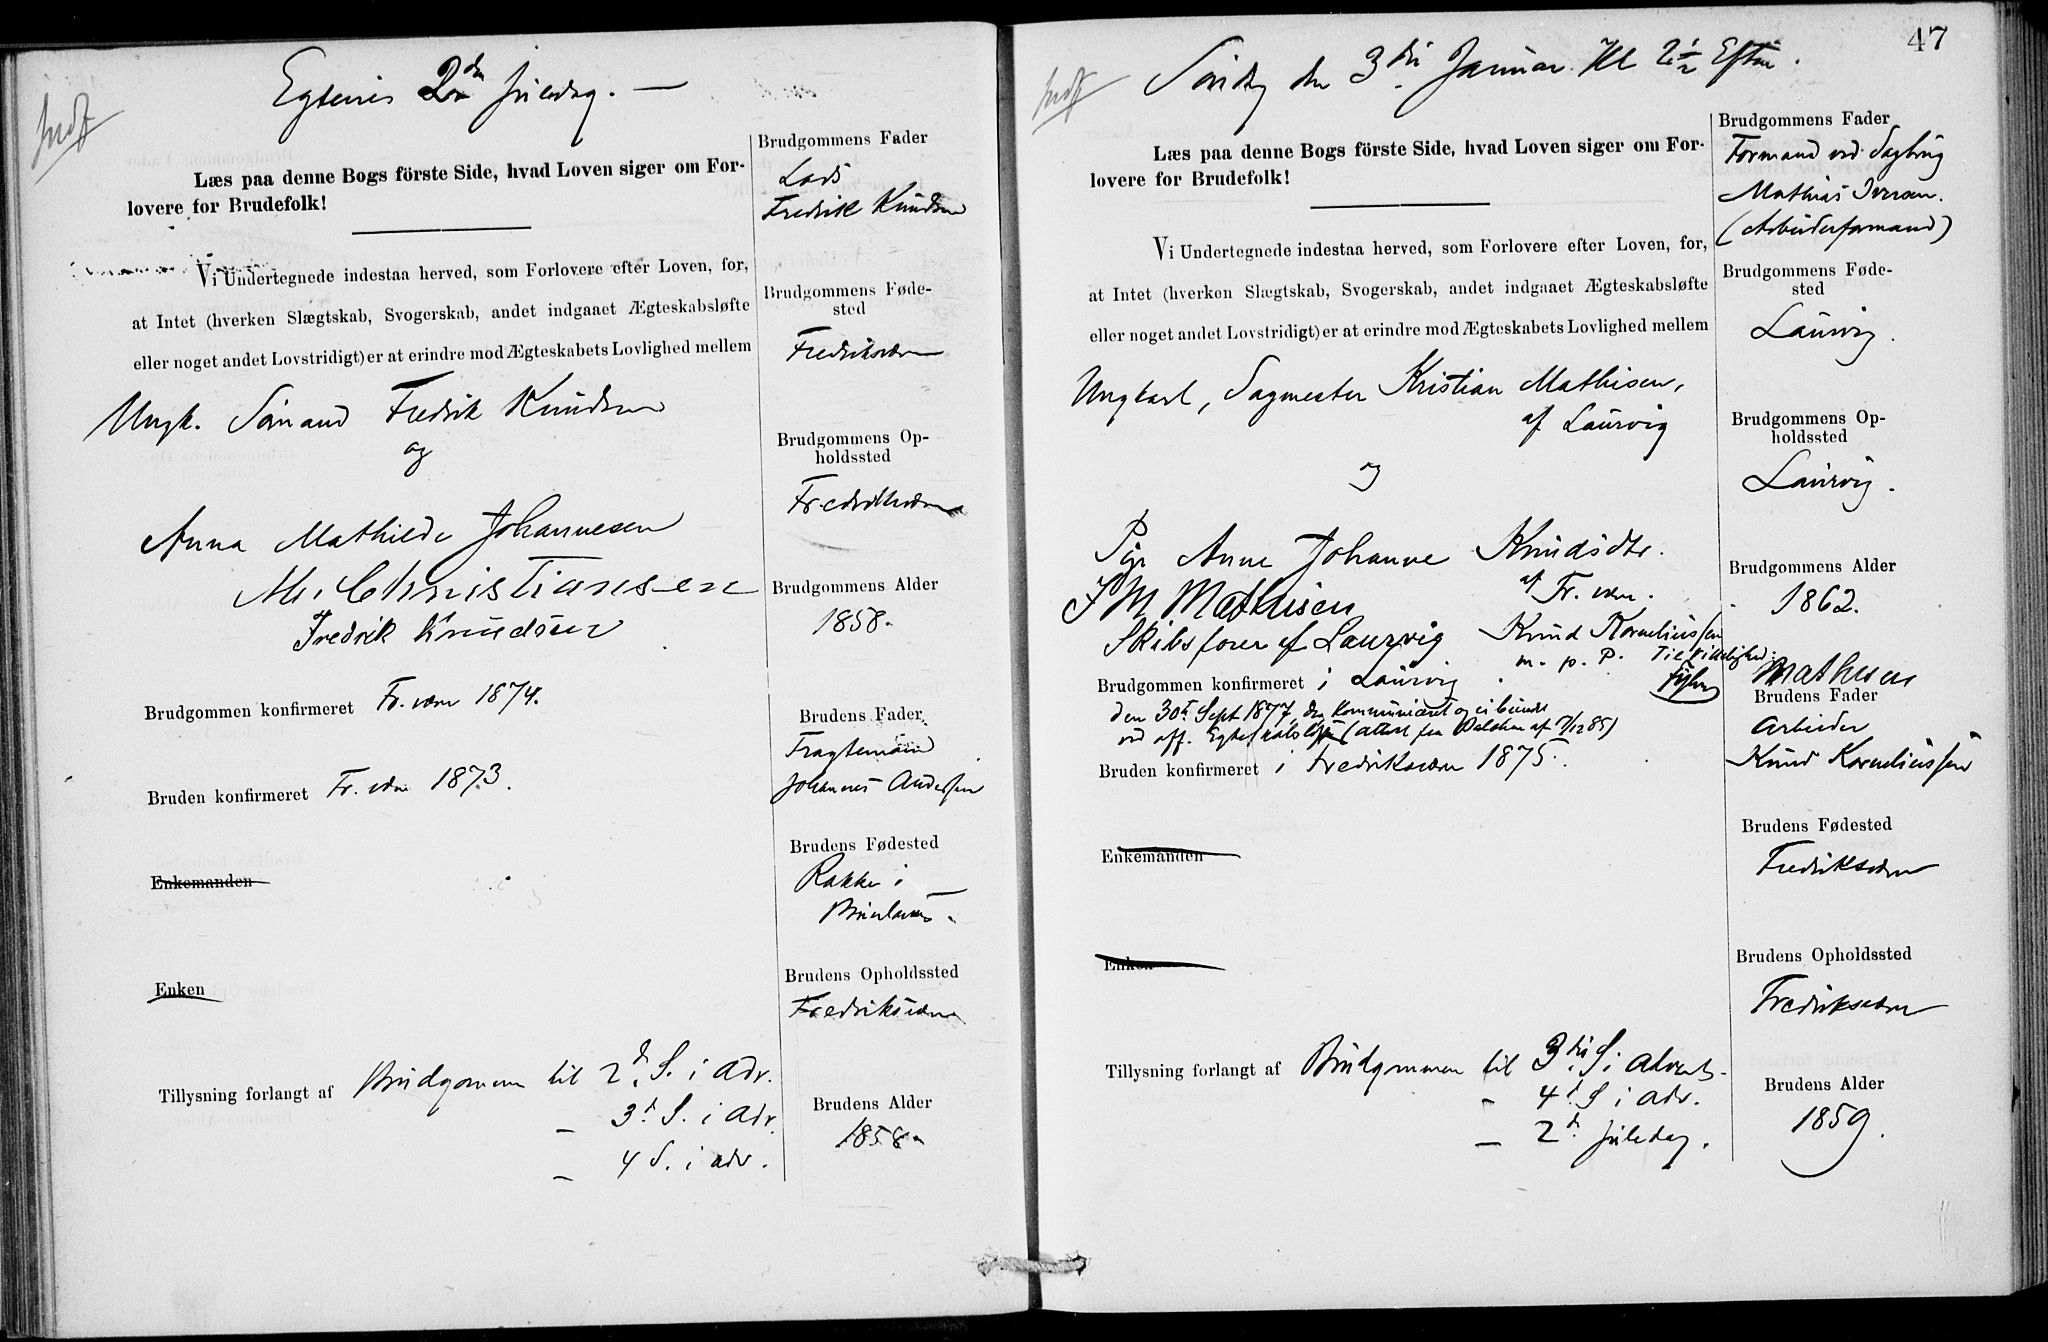 Egtevies 2den Juledag. —
indf
Læs paa denne Bogs förste Side, hvad Loven siger om For-
lovere for Brudefolk!
Vi Undertegnede indestaa herved, som Forlovere efter Loven, for,
at Intet (hverken Slægtskab, Svogerskab, andet indgaaet Ægteskabsløfte
eller noget andet Lovstridigt) er at erindre mod Ægteskabets Lovlighed mellem
Ungk. Sömand Fredrik Knudsen
og
Anna Mathilde Johannesen
M. Christiansen
Fredrik Knudsen
Brudgommen konfirmeret Fr.værn 1874.
Bruden konfirmeret Fr.værn 1873.
Enkemanden
Enken
Tillysning forlangt af Brudgommen til 2d. S. i Adv.
— 3d S. i Adv.
— 4 S. i adv.
Brudgommens Fader
Lods
Fredrik Knudsen
Brudgommens Føde-
sted
Fredriksværn
Brudgommens Op-
holdssted
Fredriksværn
Brudgommens Alder
1858.
Brudens Fader
Fragtemand
Johannes Anderssen
Brudens Fødested
Rakke i
Brunlanes.
Brudens Opholdssted
Fredriksværn
Brudens Alder
1858.
47
Söndag den 3die Januar Kl 2½ Eftm.
indf
Læs paa denne Bogs förste Side, hvad Loven siger om For-
lovere for Brudefolk!
Vi Undertegnede indestaa herved, som Forlovere efter Loven, for,
at Intet (hverken Slægtskab, Svogerskab, andet indgaaet Ægteskabsløfte
eller noget andet Lovstridigt) er at erindre mod Ægteskabets Lovlighed mellem
Ungkarl, Sagmester Kristian Mathisen,
af Laurvig
og
Pige Anne Johanne Knudsdtr.
af Fr.værn.
J M Mathisen
Skibsförer af Laurvig
Knud Korneliussen
m. p. P. Til Vitterlighed:
Mathisen
Brudgommen konfirmeret i Laurvig
den 30t Sept 1877, dog kommuniceret og ei bundet
ved off. Egteskabslöfte (attest fra af 7/12 85)
Bruden konfirmeret i Fredriksværn 1875.
Enkemanden
Enken
Tillysning forlangt af Brudgommen til 3die S. i Advents-
- 4d S i adv.
— 2d. Juledag.
Brudgommens Fader
Formand ved Sagbrug
Mathias Iversen.
(Arbeiderformand)
Brudgommens Føde-
sted
Laurvig.
Brudgommens Op-
holdssted
Laurvig.
Brudgommens Alder
1862.
Brudens Fader
Arbeider
Knud Korneliussen
Brudens Fødested
Fredriksværn
Brudens Opholdssted
Fredriksværn
Brudens Alder
1859.